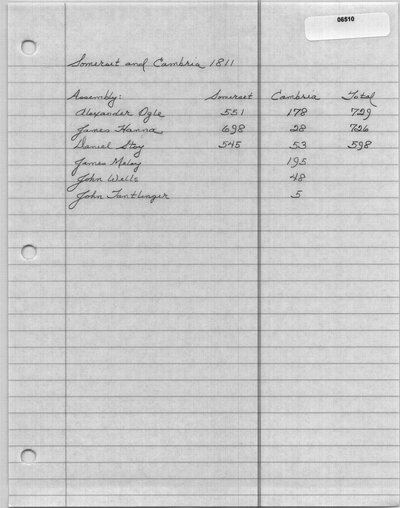 06510
Somerset and Cambria 1811
Assembly: Somerset Cambria Total
Alexander Ogle 551 178 729
James Hanna 698 28 726
Daniel Stoy 545 53 598
James Meloy 195
John Wells 48
John Tantlinger 5